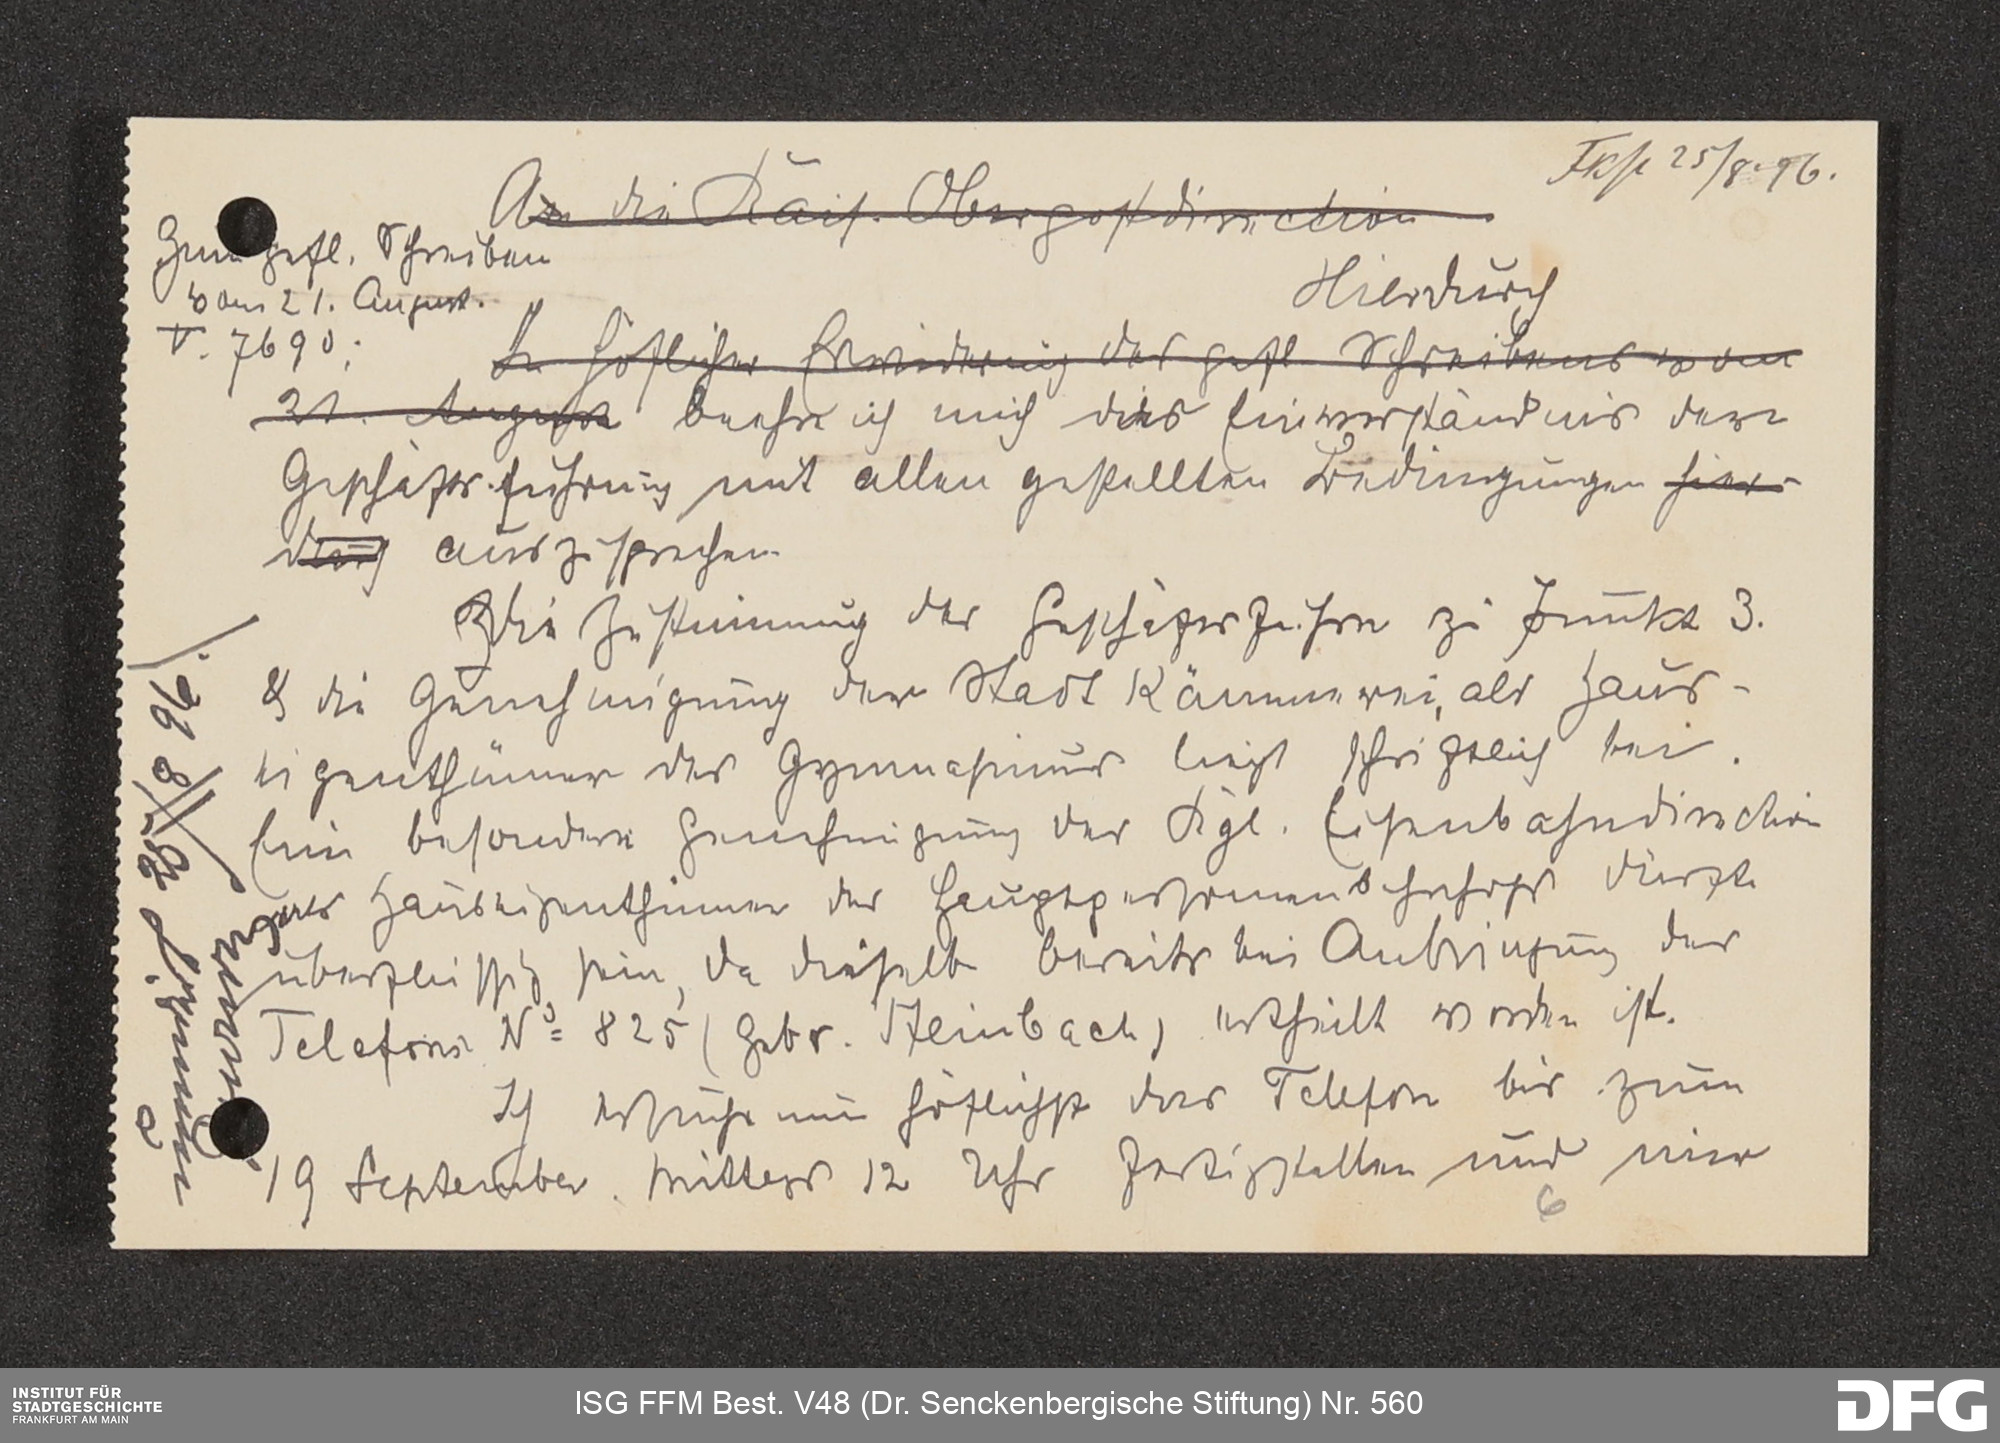 Fkft 25/8.96.
An die Kais. Oberpostdirection
Zum gefl. Schreiben
vom 21. August.
V. 7690;
Hierdurch
In höflicher Erwiderung des gefl. Schreibens vom
21. August beehre ich mich das Einverständnis der
Geschäftsführung mit allen gestellten Bedingungen hier-
durch auszusprechen.
Die Zustimmung der Geschäftsführer zu Punkt 3.
& die Genehmigung der Stadt Kämmerei, als Haus-
eigenthümer des Gymnasiums liegt schriftlich bei.
Eine besondere Genehmigung der Kgl. Eisenbahndirection
als Hauseigenthümer des Hauptpersonenbahnhofs dürfte
überflüssig sein, da dieselbe bereits bei Anbringung des
Telefons No 825 (Gebr. Steinbach) ertheilt worden ist.
Ich ersuche nun höflichst das Telefon bis zum
19 September. Mittags 12 Uhr fertigstellen und mir
6
INSTITUT FÜR
STADTGESCHICHTE
FRANKFURT AM MAIN
ISG FFM Best. V48 (Dr. Senckenbergische Stiftung) Nr. 560
DFG